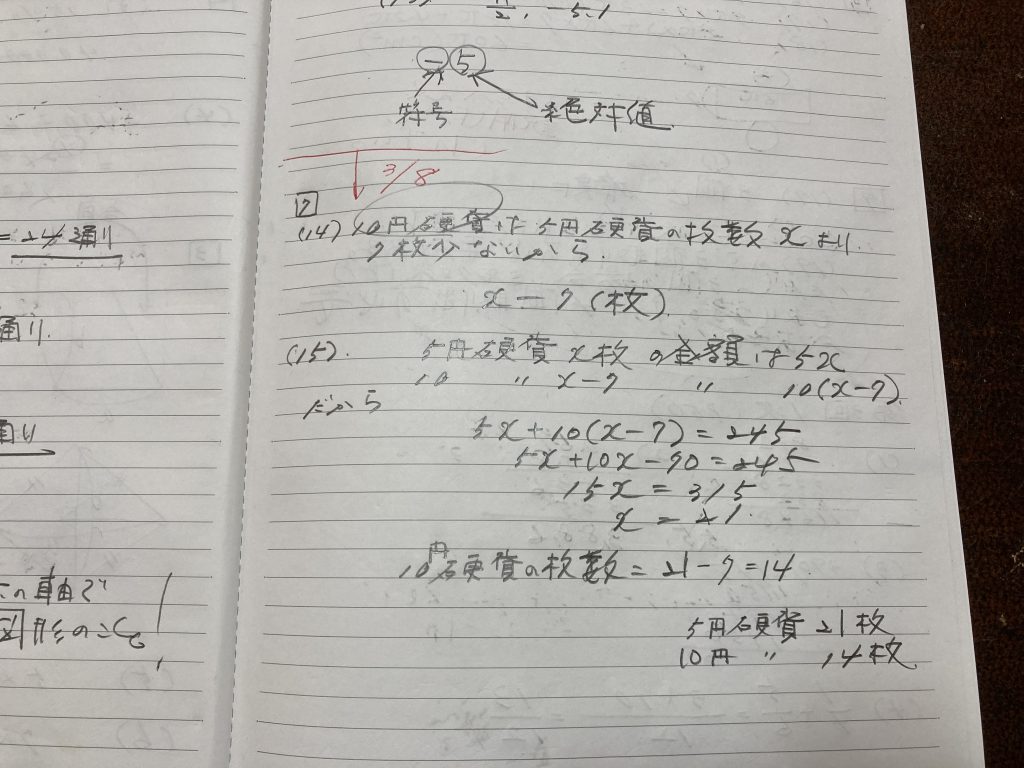 = 24通り
通り.
通り
この自由で
図形のこと。
π/2, -5.1
- 5
符号
絶対値
3/8
7
(14) 10円硬貨は5円硬貨の枚数xより
7枚少ないから.
x - 7 (枚)
(15). 5円硬貨 x枚 の金額は5x
10 〃 x-7 〃 10(x-7)
だから
5x+10(x-7)=245
5x+10x-70=245
15x = 315
x = 21.
10円硬貨の枚数= 21-7=14
5円硬貨 21枚
10円 〃 14枚